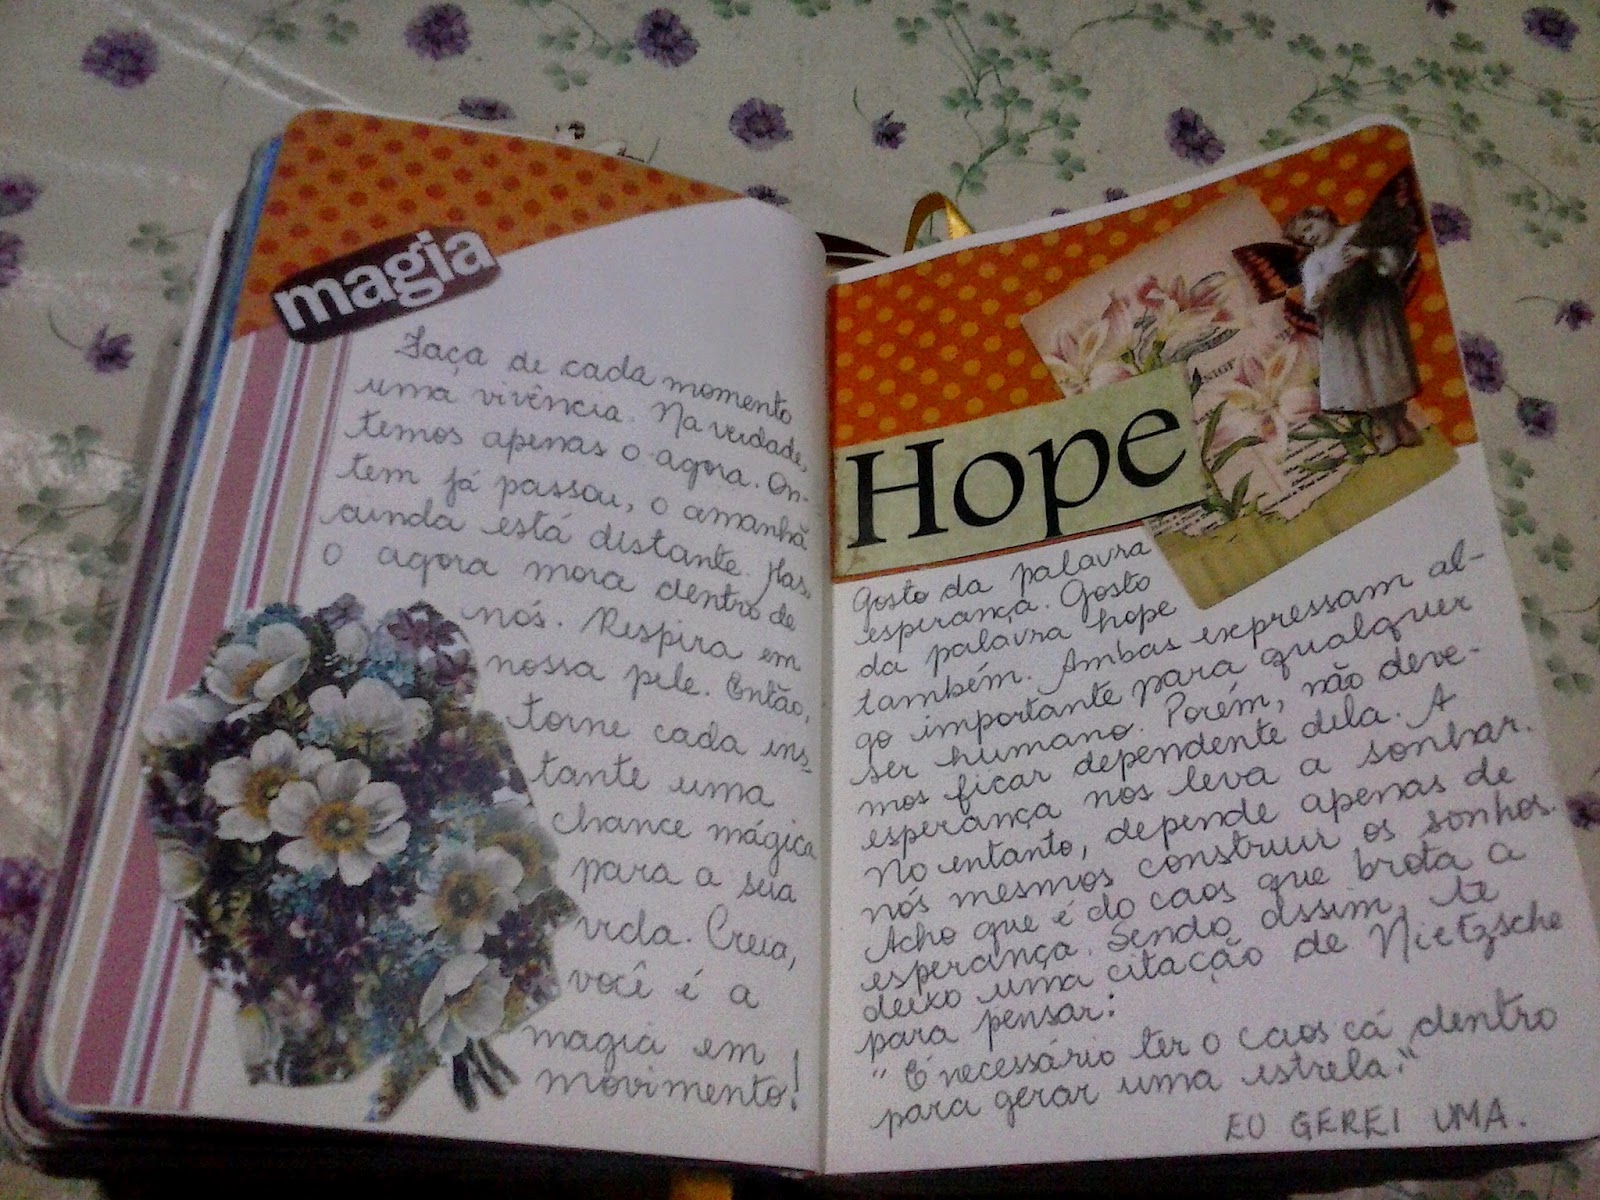 magia
Faça de cada momento
uma vivência. Na verdade,
temos apenas o agora. On-
tem já passou, o amanhã
ainda está distante. Mas,
o agora mora dentro de
nós. Respira em
nossa pele. Então,
torne cada ins-
tante uma
chance mágica
para a sua
vida. Creia,
você é a
magia em
movimento!
Hope
Gosto da palavra
esperança. Gosto
da palavra hope
também. Ambas expressam al-
go importante para qualquer
ser humano. Porém, não deve-
mos ficar dependente dela. A
esperança nos leva a sonhar.
No entanto, depende apenas de
nós mesmos construir os sonhos.
Acho que é do caos que brota a
esperança. Sendo assim, te
deixo uma citação de Nietzsche
para pensar:
"É necessário ter o caos cá dentro
para gerar uma estrela."
EU GEREI UMA.